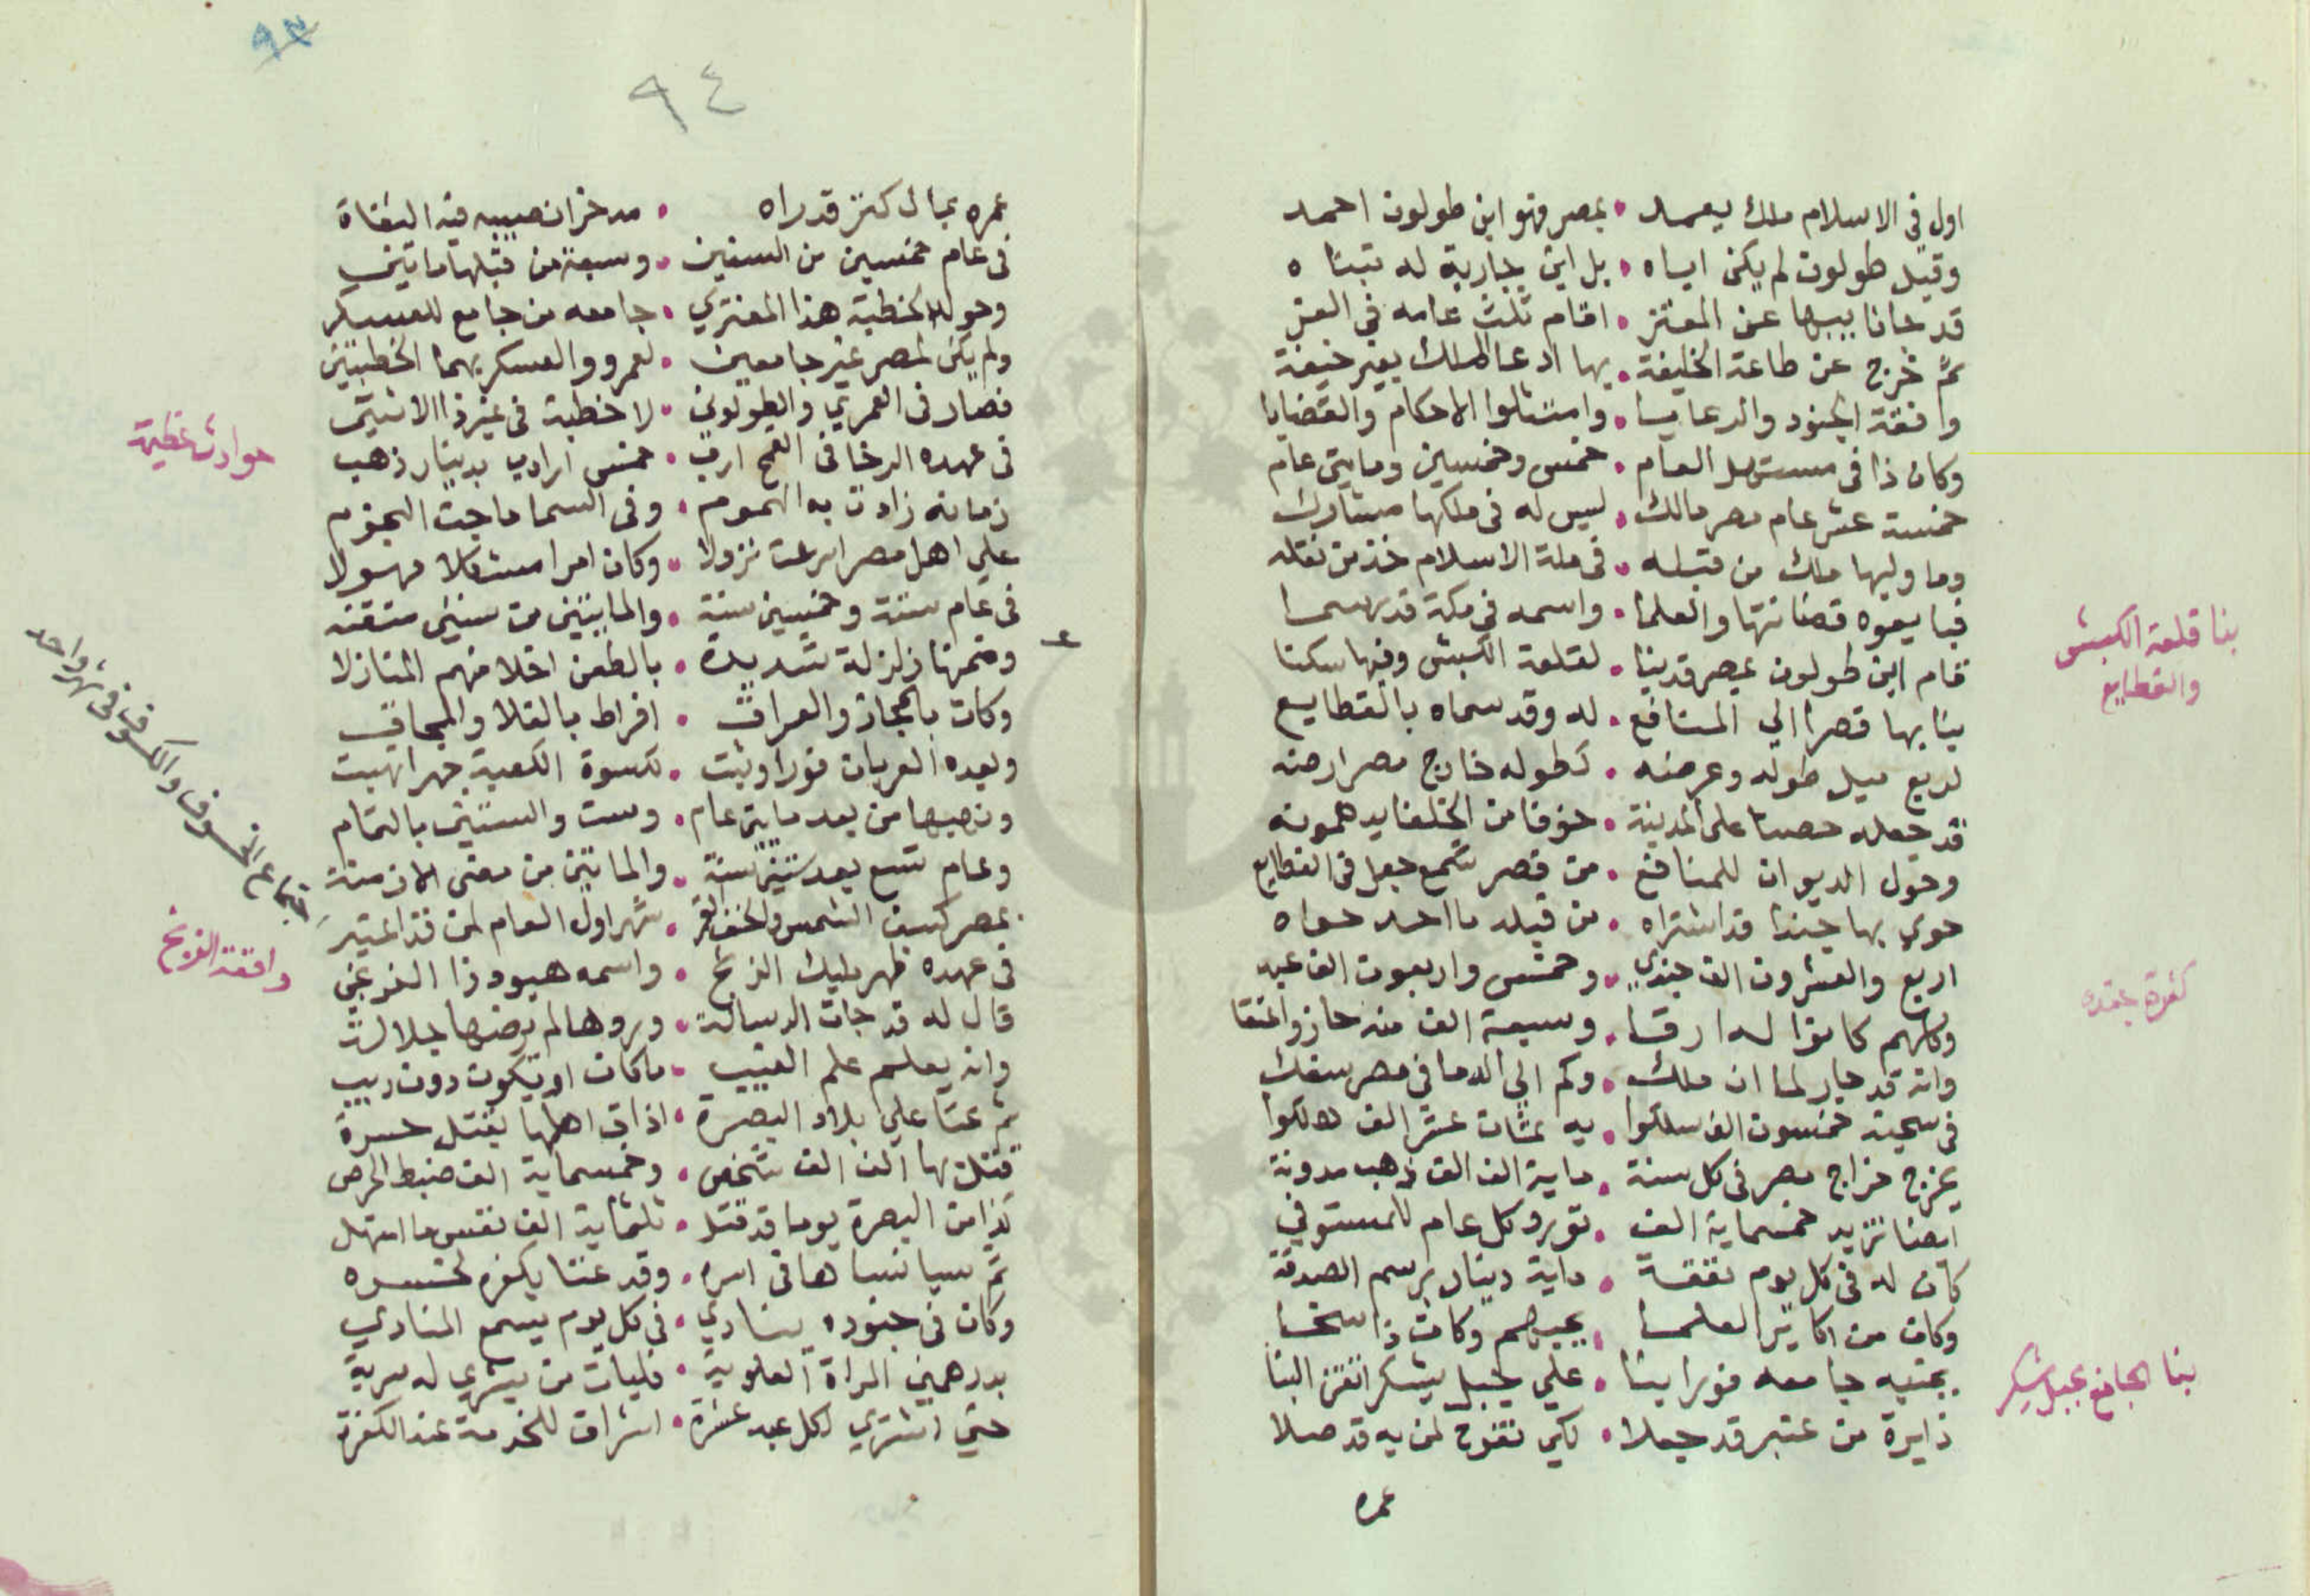 اول في الاسلام ملك يعمد • بمصر فهو ابن طولون احمد
وقيل طولون لم يكن اباه • بل ابن جارية له تبناه
قد جانا بيبها عن المعتز • اقام ثلث عامه في العز
ثم خرج عن طاعة الخليفة • بها ادعا الملك بغير خيفة
وافقة الجنود والرعايا • وامتثلوا الاحكام والقضايا
وكان ذا في مستهل العام • خمس وخمسين ومايتي عام
خمسة عشر عام مصر مالك • ليس له في ملكها مشارك
وما وليها ملك من قبله • في ملة الاسلام خذ من نقله
فبايعوه قضاتها والعلما • واسمه في مكة قد رسما
قام ابن طولون بمصر قد بنا • لقلعة الكبش وفيها سكنا
بنا بها قصرا الي المنافع • له وقد سماه بالقطايع
لربع ميل طوله وعرضه • كطوله خارج مصر ارضه
قد جعله حصنا على المدينة • خوفا من الخلفا يدهمونه
وحول الديوان للمنافع • من قصر شمع جعل في القطايع
حوي بها جندا قد اشتراه • من قبله ما احد حواه
اربع والعشرون الف جندي • وخمس واربعون الف عبد
وكلهم كانوا له ارقا • وسبعة الف منه حاز والعتقا
وانه قد جار لما ان ملك • وكم الي الدما في مصر سفك
في سجنه خمسون الف سلكوا • به ثمان عشر الف هلكوا
يخرج خراج مصر في كل سنة • ماية الف الف ذهب مدونة
ايضا تزيد خمسماية الف • تورد كل عام للمستوفي
كان له في كل يوم نفقة • ماية دينار برسم الصدقة
وكان من اكابر العلما • يحبهم وكان ذا سخا
بجنبه جامعه فورا بنا • علي جبل يشكر اتقن البنا
دايرة من عنبر قد جعلا • لكي تفوح لمن به قد صلا
عمره
بنا قلعة الكبش
والقطايع
كثرة جنده
بنا الجامع بجبل يشكر
٩٣
٩٤
عمره بمال كنز قد راه • مدخرا نصيبه فيه الثقاة
في عام خمسين من السنين • وسبعة من قبلها ماتين
وحول الخطبة هذا المفتري • جامعه من جامع للعسكر
ولم يكن لمصر غير جامعين • لعمرو والعسكر بهما الخطبتين
فصار في العمري والطولوني • لا خطبة في غير ذا الاثنين
في عهده الرخا في القمح ارب • خمس ارادب بدينار ذهب
زمانه زادت به الهموم • وفي السما ماجت النجوم
علي اهل مصر اسرعت نزولا • وكان امرا مشكلا مهولا
في عام ستة وخمسين سنة • والمايتين من سنين متقنه
وضمنها زلزلة شديدة • بالطعن اخلا منهم المنازلا
وكان بالحجاز والعراق • افراط بالغلا والمحاق
وبعده العربان فورا وثبت • لكسوة الكعبة جهرا نهبت
ونهبها من بعد مايتي عام • وست والستين بالتمام
وعام تسع بعد ستين سنة • والماتين من مضي الازمنة
بمصر كسف الشمس والخسف القمر • شهر اول العام لمن قد اعتبر
في عهده ظهر مليك الزنج • واسمه هبود ذا
قال له قد جات الرسالة • وردها لم يرضها جلالة
وانه يعلم علم الغيب • ما كان او يكون دون ريب
ثم عتا علي بلاد البصرة • اذاق اهلها بقتل حسرة
قتل بها الف الف شخص • وخمسماية الف ضبط الحرص
كذا من البصرة يوما قد قتل • ثلثماية الف نفس ما امتهل
ثم سبا نساها في اسره • وقد عتا بكفره لخسره
وكان في جنوده ينادي • في كل يوم يسمع المنادي
بدرهمين المراة العلوية • فليات من يشري له سرية
حتي اشتري لكل عبد عشرة • اشراف للخدمة عند الكفرة
حوادث عظيمة
اجتماع الخسوف والكسوف في شهر واحد
واقعة الزنج